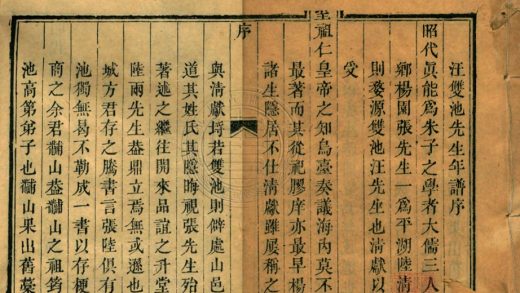 汪雙池先生年譜序
昭代眞能爲朱子之學者大儒三人
鄉楊園張先生一爲平湖陸清
則婺源雙池汪先生也清獻以
受
聖祖仁皇帝之知烏臺奏議海內莫不
最著而其從祀膠庠亦最早楊
諸生隱居不仕清獻雖屢稱之
序
與清獻埒若雙池則僻處山邑
道其姓氏其隱晦視張先生殆
著述之繼往開來品詣之升堂
陸兩先生葢鼎立焉無或遜也
城方君存之騰書言張陸俱有
池獨無曷不勒成一書以存梗
商之余君黼山葢黼山之祖筠
池高第弟子也黼山果出舊藁